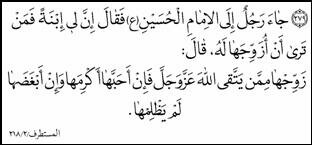 (٢٧٩) جَاءَ رَجُلٌ إِلَى الْإِمَامِ الْحُسَيْنِ (ع) فَقَالَ إِنَّ لِي إِبْنَةً فَمَنْ
تَرَىٰ أَنْ أُزَوِّجَهَا لَهُ، قَالَ:
زَوِّجْهَا مِمَّنْ يَتَّقِى اللّٰهَ عَزَّ وَجَلَّ فَإِنْ أَحَبَّهَا أَكْرَمَهَا وَإِنْ أَبْغَضَهَا
لَمْ يَظْلِمْهَا.
المستطرف/٢١٨/٢